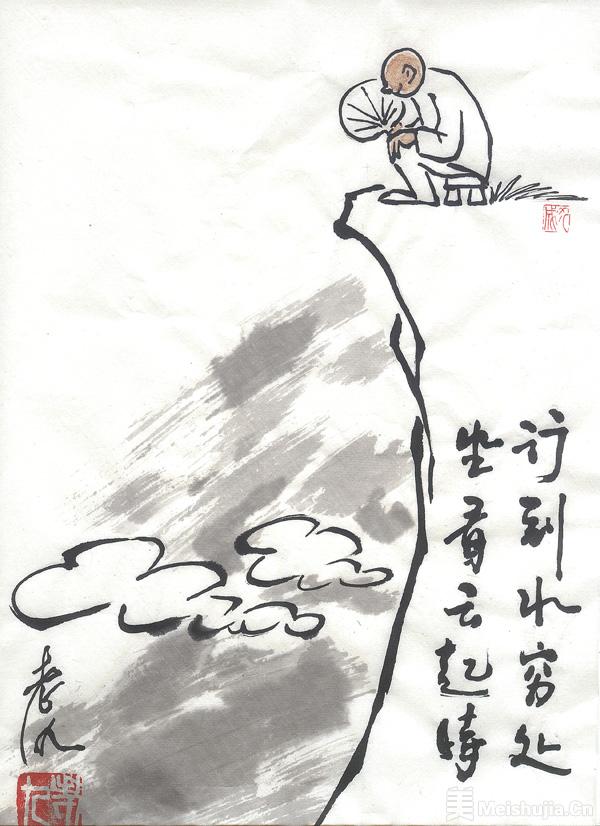 行到水穷处
坐看云起时
美 Meishujia.Cn